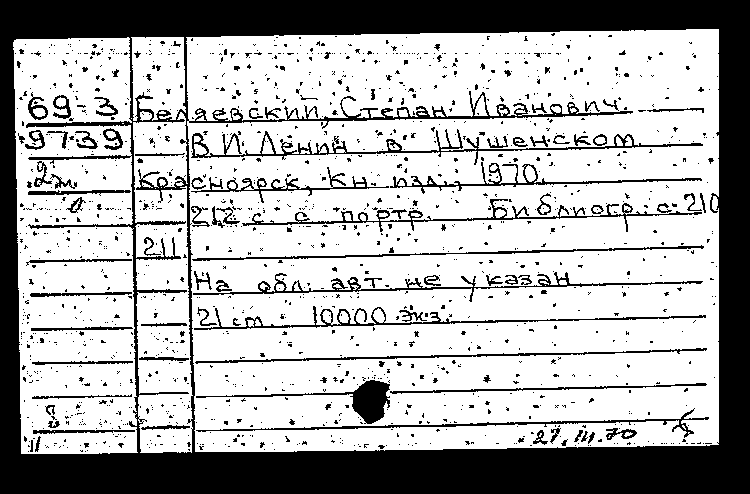 69-3 Беляевский, Степан Иванович.
9739 В.И. Ленин в Шушенском.
2 м Красноярск, Кн. изд., 1970.
212 с. с портр. Библиогр.: с. 210
211.
На обл. авт. не указан
21 см. 10000 экз.
8
11
27.III.70